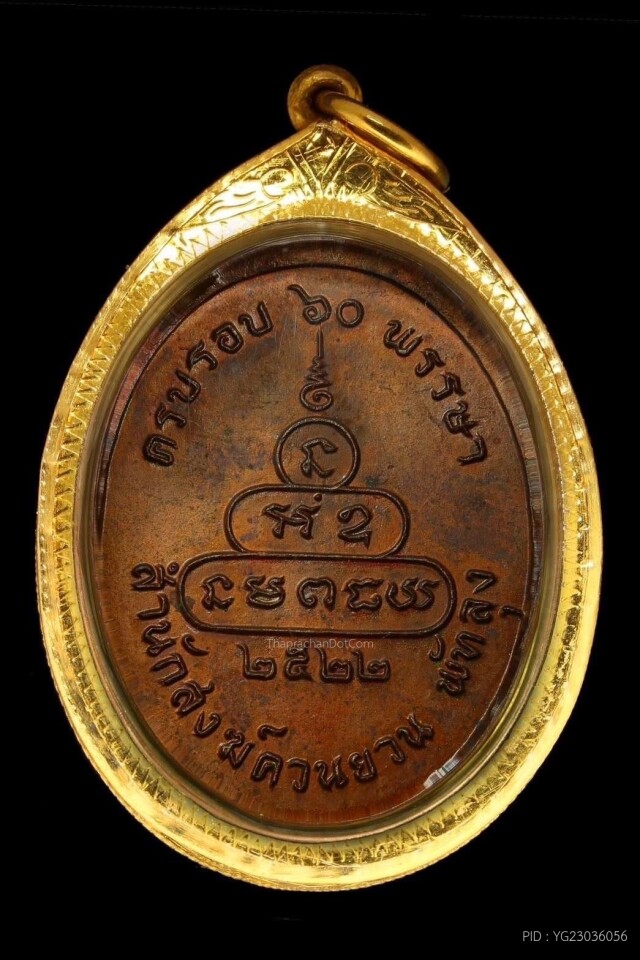 ครบรอบ ๖๐ พรรษา
๒๕๒๒
สำนักสงฆ์ควนยวน พัทลุง
ThaprachanDotCom
PID : YG23036056